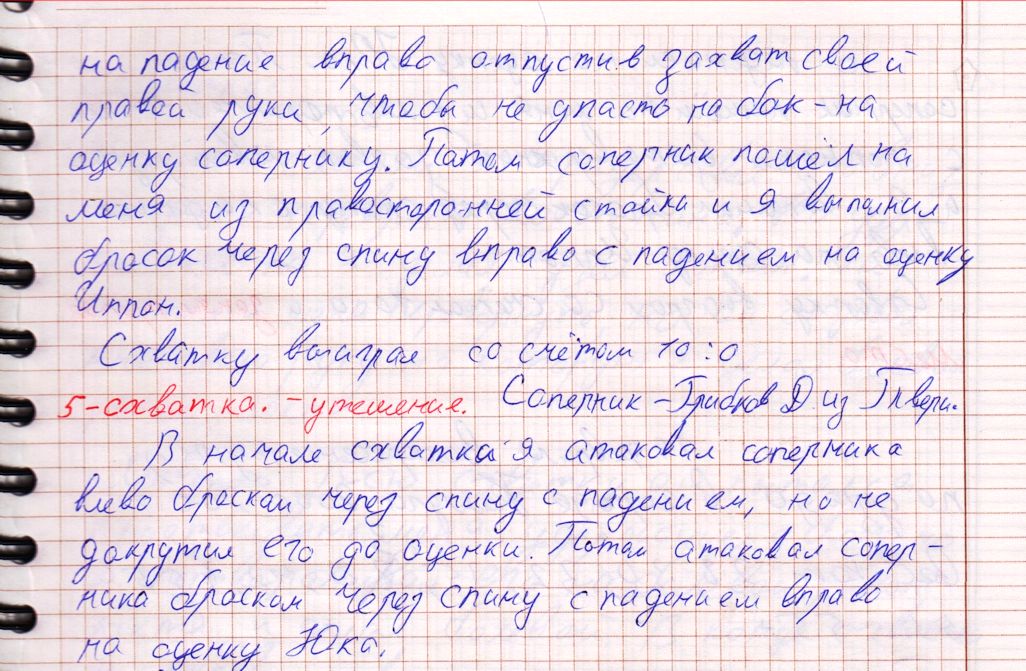 на падение вправо отпустив захват своей
правой руки, чтобы не упасть на бок - на
оценку сопернику. Потом соперник пошёл на
меня из правосторонней стойки и я выполнил
бросок через спину вправо с падением на оценку
Иппон.
Схватку выиграл со счётом 10:0
5-схватка. - утешение. Соперник - Грибков Д из Твери.
В начале схватки я атаковал соперника
влево броском через спину с падением, но не
докрутил его до оценки. Потом атаковал сопер-
ника броском через спину с падением вправо
на оценку Юка.